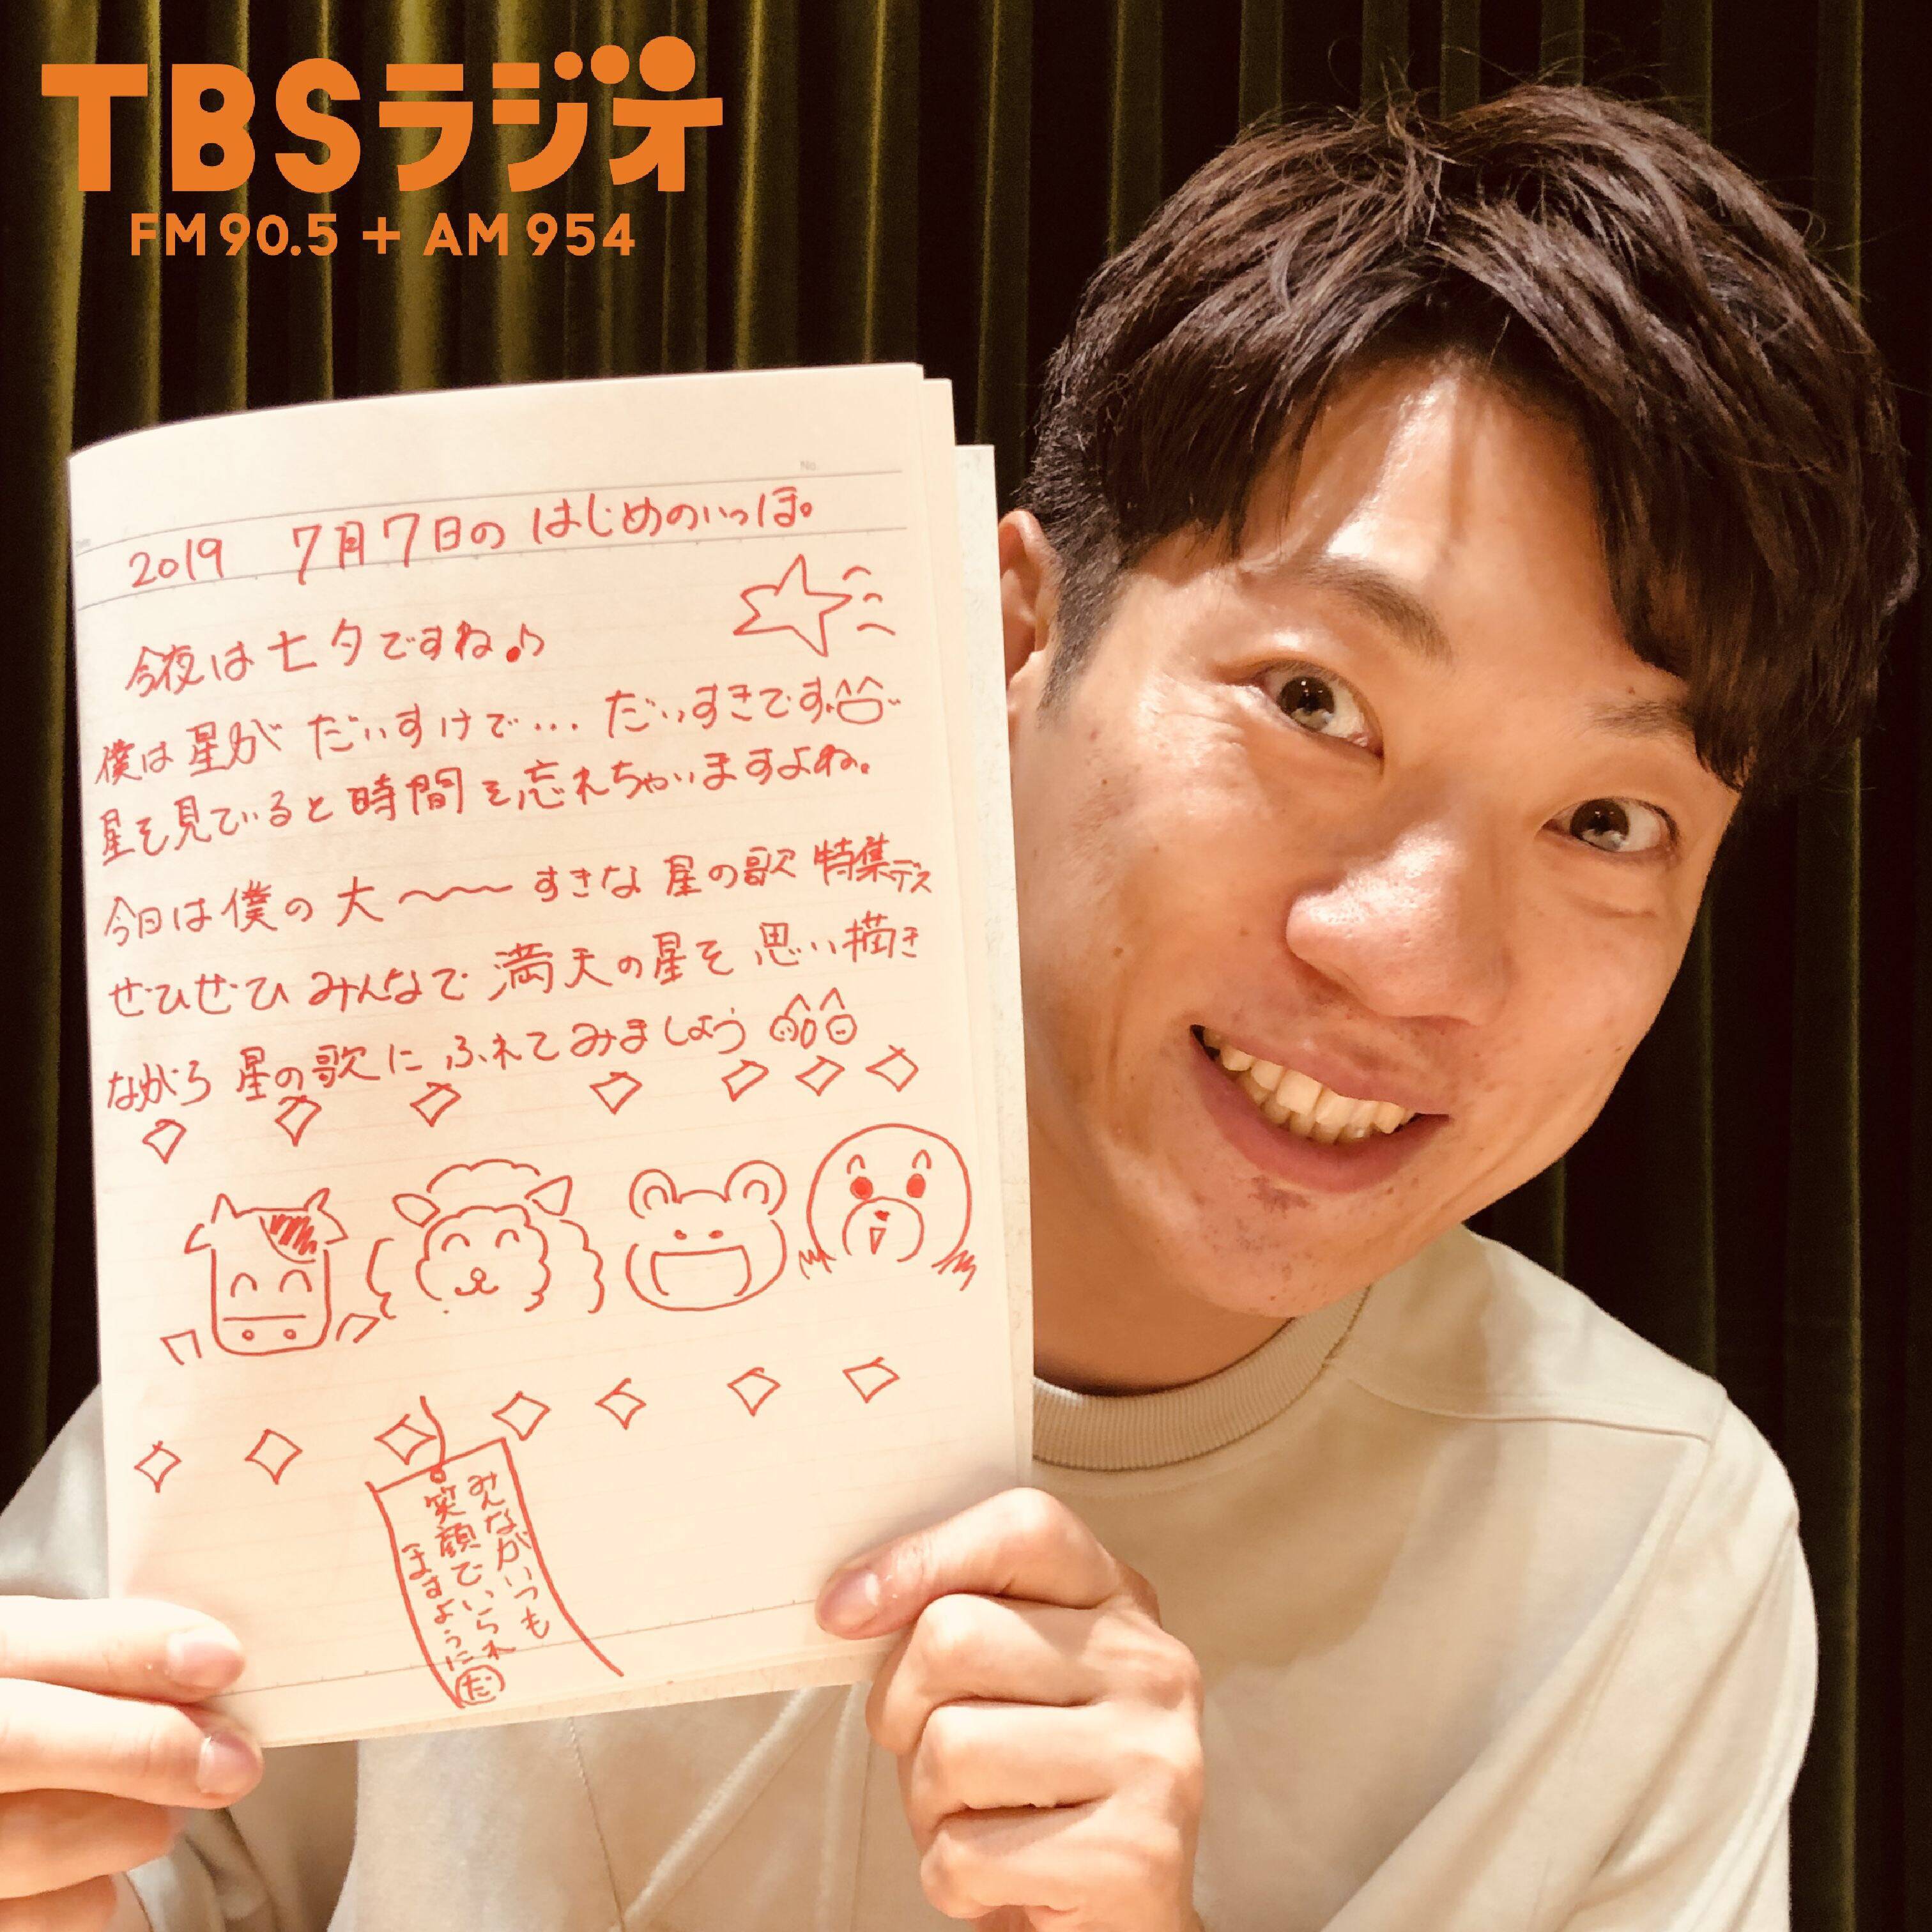 TBSラジオ
FM 90.5 + AM 954
No.
2019 7月7日の はじめのいっぽ。
今夜は七夕ですね♪
僕は星が だいすけで… だいすきです
星を見ていると時間を忘れちゃいますよね。
今日は僕の大〜〜すきな 星の歌 特集デス
ぜひぜひ みんなで 満天の星を 思い描き
ながら 星の歌に ふれてみましょう
みんながいつも
笑顔でいられ
ますように だ